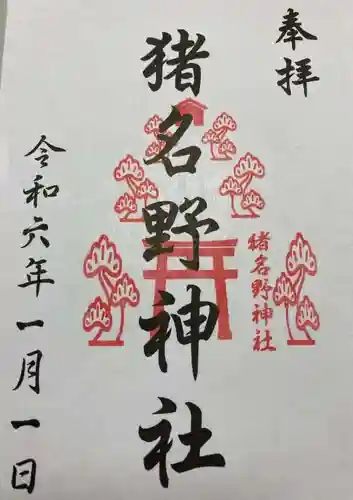 奉拝
猪名野神社
猪名野神社
令和六年一月一日